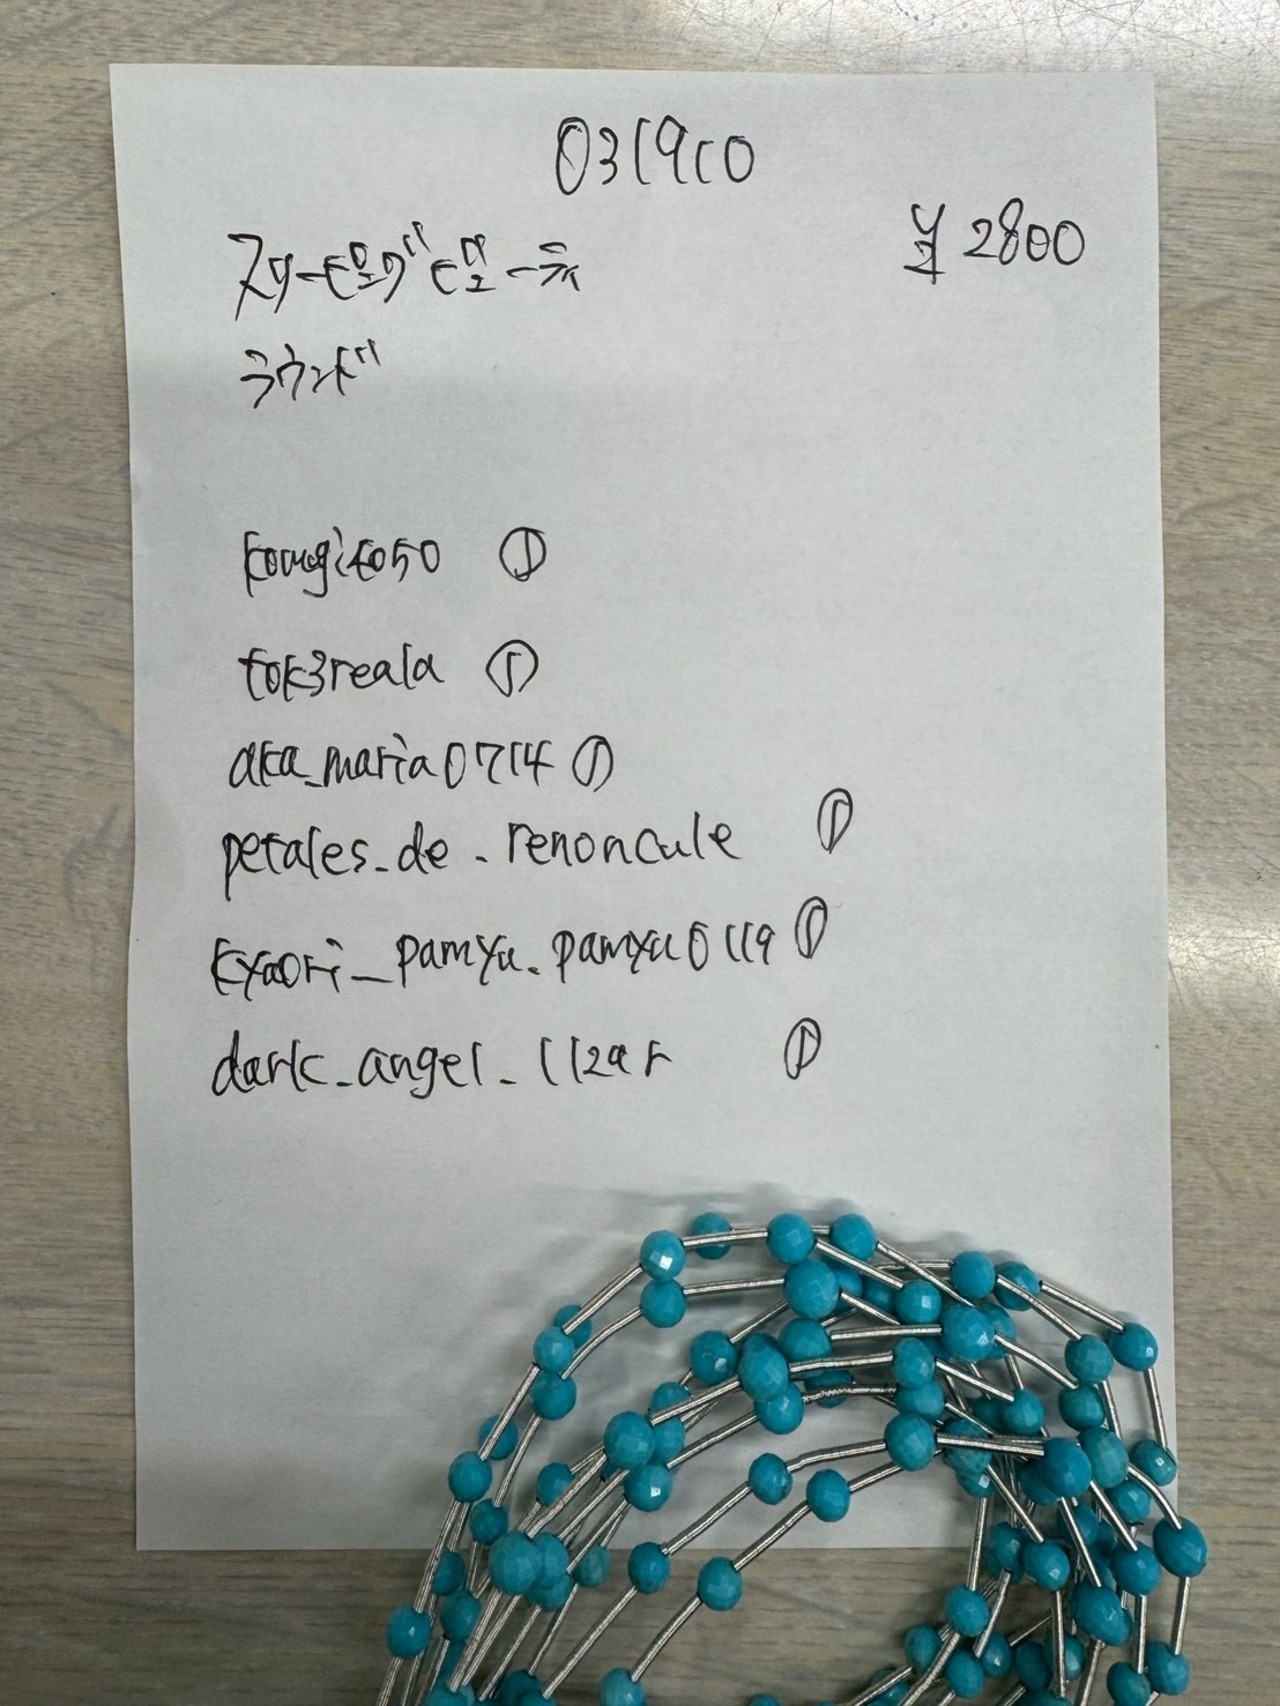 031910
¥2800
スリーピングビューティ
ラウンド
kougito50 ①
tok3reala ①
aka_maria0714 ①
petales_de_renoncule ①
kyaori_pamyu.pamyu0119 ①
dark_angel_112ar ①